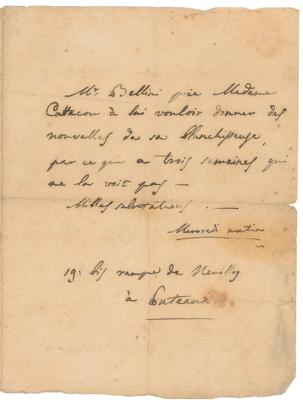 Mr. Bellini prie Madame
Cattacou à lui vouloir donner des
nouvelles de sa blanchisseuse,
par ce que a trois semaines qui
ne la voit pas —
Milles salutations. —
Mercredi matin
19: bis rampe de Neuilly
à Puteaux